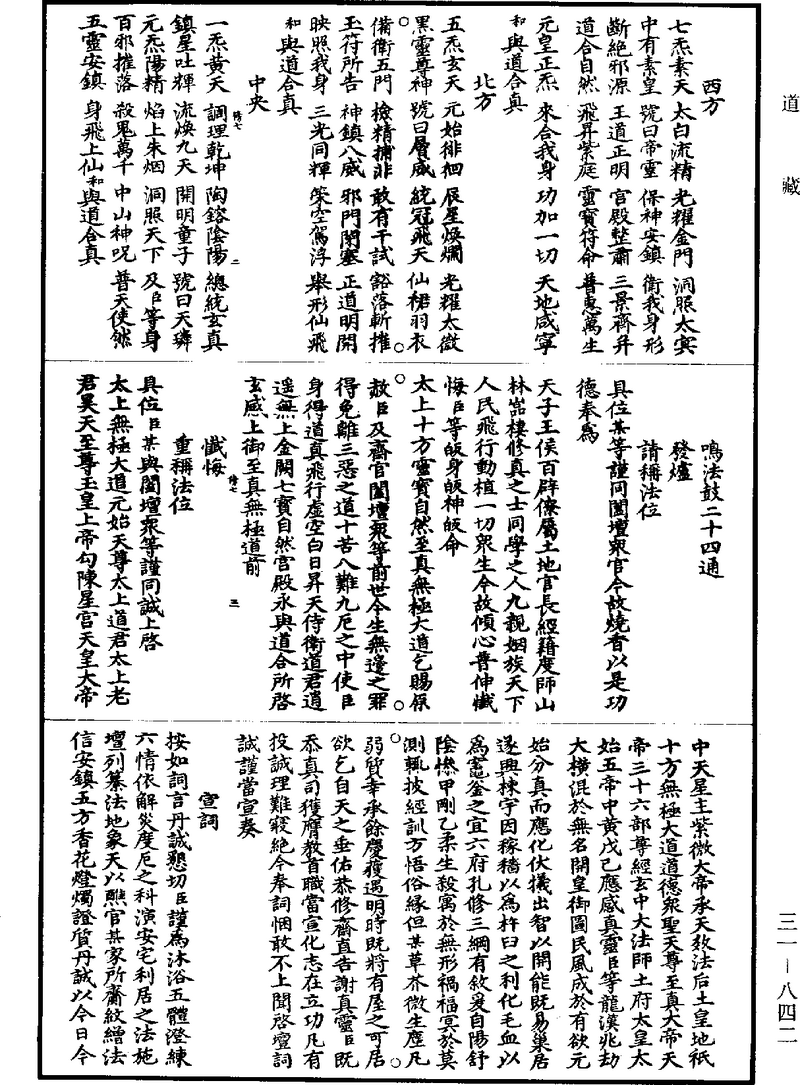 道藏
西方
七炁素天 太白流精 光耀金門 洞照太冥
中有素皇 號曰帝靈 保神安鎮 衛我身形
斷絕邪源 王道正明 宫殿整肅 三景齊昇
道合自然 飛昇紫庭 靈寶符命 普惠萬生
元皇正炁 來合我身 功加一切 天地咸寧
和與道合真
北方
五炁玄天 元始徘徊 辰星煥爛 光耀太微
黑靈尊神 號曰層威 統冠飛天 仙裙羽衣
備衛五門 檢精捕非 敢有干試 豁落斬摧
玉符所告 神鎮八威 邪門閉塞 正道明開
映照我身 三光同輝 策空駕浮 舉形仙飛
和與道合真
中央
一炁黄天 調理乾坤 陶鎔陰陽 總統玄真
鎮星吐輝 流煥九天 開明童子 號曰天璘
元炁陽精 焰上朱烟 洞照天下 及臣等身
百邪摧落 殺鬼萬千 中山神呪 普天使然
五靈安鎮 身飛上仙 和與道合真
鳴法鼓二十四通
發爐
請稱法位
具位某等謹同闔壇衆官今故燒香以是功
德奉爲
天子王侯百辟僚屬土地官長經籍度師山
林嵓棲修真之士同學之人九親姻族天下
人民飛行動植一切衆生今故傾心普伸懺
悔臣等皈身皈神皈命
太上十方靈寶自然至真無極大道乞賜原
赦臣及齋官闔壇衆等前世今生無邊之罪
得免離三惡之道十苦八難九厄之中使臣
身得道真飛行虚空白日昇天侍衛道君逍
遥無上金闕七寶自然宫殿永與道合所啓
玄感上御至真無極道前
懺悔
重稱法位
具位臣某與闔壇衆等謹同誠上啓
太上無極大道元始天尊太上道君太上老
君昊天至尊玉皇上帝勾陳星宫天皇大帝
中天星主紫微大帝承天效法后土皇地祇
十方無極大道道德衆聖天尊至真大帝天
帝三十六部尊經玄中大法師土府太皇太
始五帝中黄戊己應感真靈臣等龍漢兆劫
大横混於無名開皇御圖民風成於有欲元
始分真而應化伏犧出智以開能既易巢居
遂興棟宇因稼穡以爲杵臼之利化毛血以
爲竈釜之宜六府孔修三綱有敘爰自陽舒
陰慘甲剛乙柔生殺寓於無形禍福冥於莫
測輒披經訓方悟俗緣但某草芥微生塵凡
弱質幸承餘慶獲遇明時既將有屋之可居
欲乞自天之垂佑恭修齋直告謝真靈臣既
忝真司獲膺教首職當宣化志在立功凡有
投誠理難寢絕今奉詞悃敢不上聞啓壇詞
誠謹當宣奏
宣詞
按如詞言丹誠懇切臣謹爲沐浴五體澄練
六情依解災度厄之科演安宅利居之法施
壇列纂法地象天以醮官某家所齋紋繒法
信安鎮五方香花燈燭證質丹誠以今日今
二
三
三一—八四二